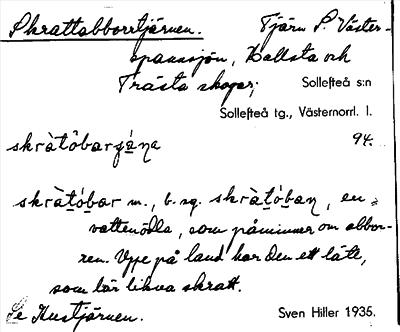 Skrattabborrtjärnen. Tjärn S. Väster-
spannsjön, Hallsta och
Trästa skogar;
Sollefteå s:n
Sollefteå tg., Västernorrl. l.
94.
skràtòbarʒa̱na
skràtòbar m., b. sg. skràtòban, en
vattenödla, som påminner om abbor-
ren. Uppe på land har den ett läte,
som lär likna skratt.
Se Hustjärnen.
Sven Hiller 1935.